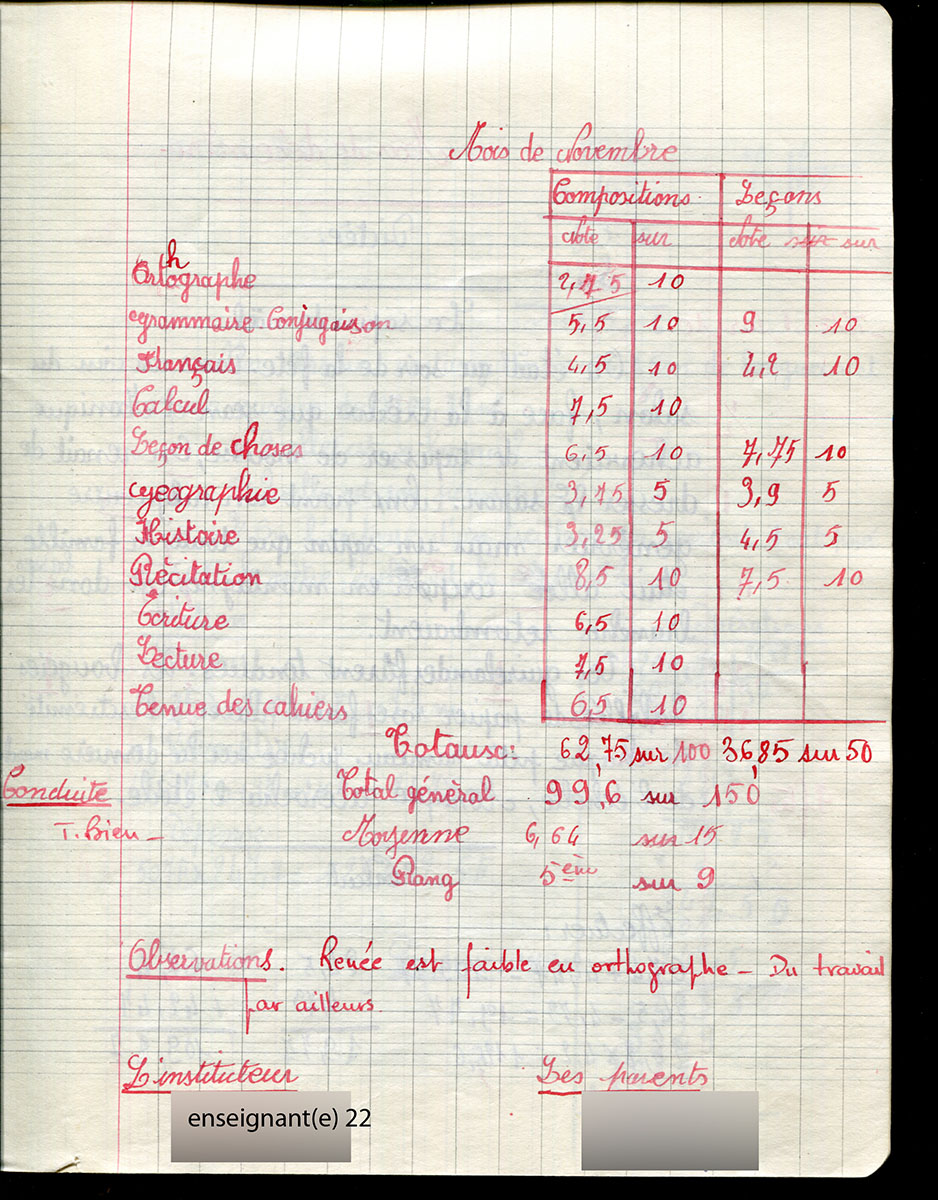 Mois de Novembre
Compositions Leçons
Note sur Note sur sur
Orthographe 2,75 10
grammaire Conjugaison 5,5 10 9 10
Français 4,5 10 4,2 10
Calcul 7,5 10
Leçon de choses 6,5 10 7,75 10
géographie 3,75 5 3,9 5
Histoire 3,25 5 4,5 5
Récitation 8,5 10 7,5 10
Ecriture 6,5 10
Lecture 7,5 10
Tenue des cahiers 6,5 10
Totaux: 62,75 sur 100 36,85 sur 50
Conduite Total général 99,6 sur 150
T. Bien - Moyenne 6,64 sur 15
Rang 5ème sur 9
Observations. Renée est faible en orthographe - Du travail
par ailleurs.
L'instituteur Les parents
enseignant(e) 22